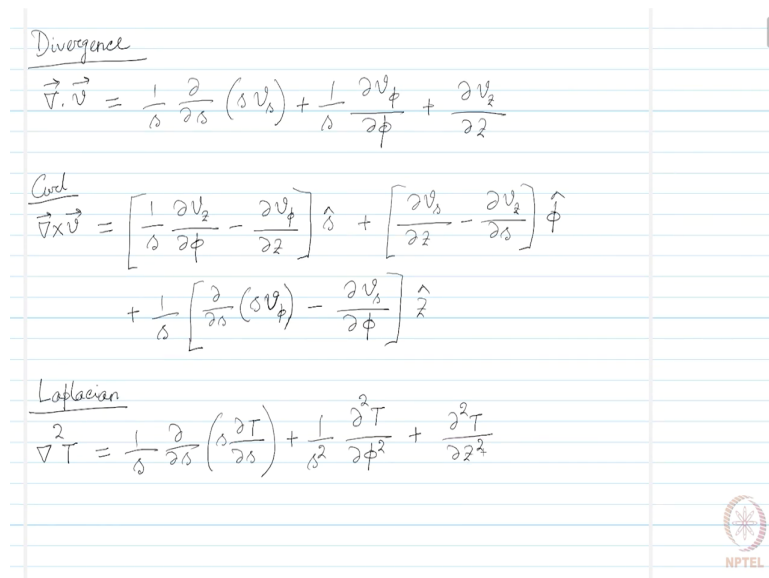 Divergence
∇⃗ · v⃗ = 1/s ∂/∂s (s v_s) + 1/s ∂v_ϕ/∂ϕ + ∂v_z/∂z
Curl
∇⃗ × v⃗ = [1/s ∂v_z/∂ϕ − ∂v_ϕ/∂z] ŝ + [∂v_s/∂z − ∂v_z/∂s] ϕ̂
+ 1/s [∂/∂s (s v_ϕ) − ∂v_s/∂ϕ] ẑ
Laplacian
∇²T = 1/s ∂/∂s (s ∂T/∂s) + 1/s² ∂²T/∂ϕ² + ∂²T/∂z²
NPTEL